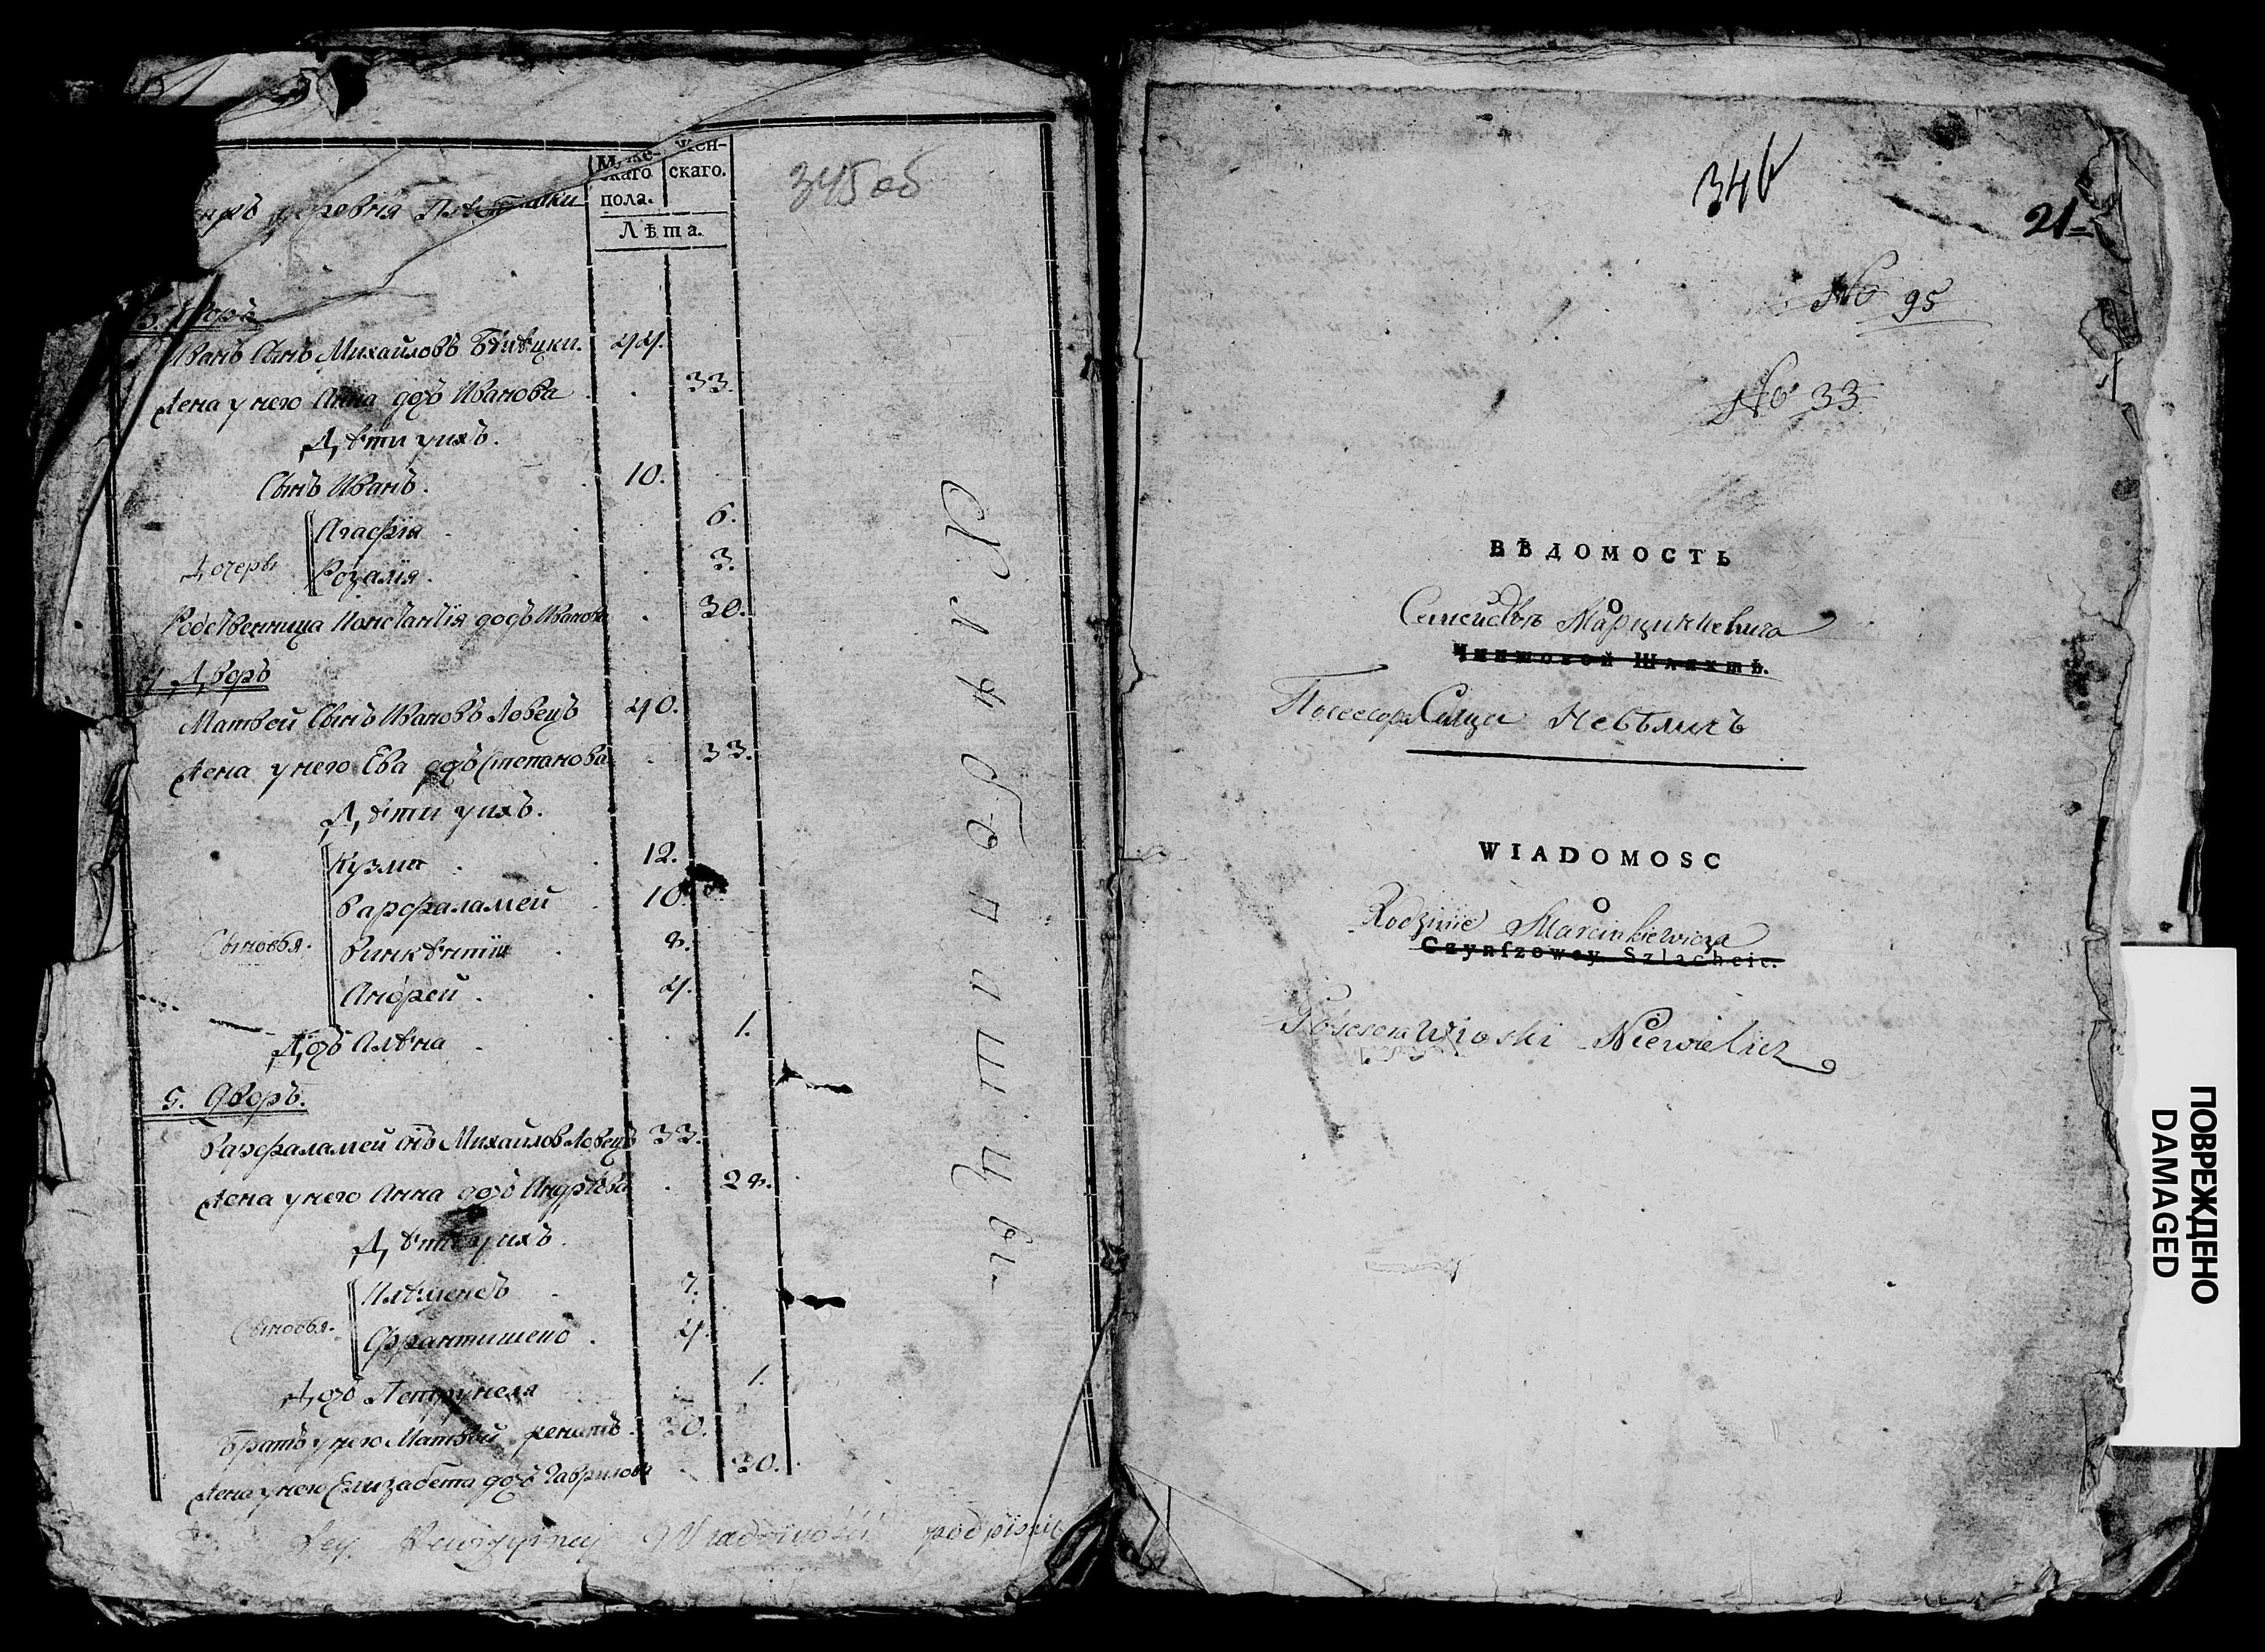 Муже-
скаго
пола.
Жен-
скаго.
Лѣта.
345 об
деревня
3. Дворъ
Иванъ Сынъ Михайловъ 44.
Жена у него Анна дочь Иванова 33.
Дѣти ихъ.
Сынъ Иванъ. 10.
Дочеры
Агафія 6.
Розалія. 3.
Родственница Константія дочь Иванова 30.
4. Дворъ
Матвей Сынъ Ивановъ Ловецъ 40.
Жена у него Ева дочь Степанова 33.
Дѣти у ихъ.
Сыновья.
Кузма 12.
Варфаламей 10.
Винкѣнтій 8.
Андрей. 4.
Дочь Алѣна 1.
5. Дворъ.
Варфаламей сынъ Михайловъ Ловецъ 33.
Жена у него Анна дочь Андрѣева 28.
Дѣти у ихъ.
Сыновья.
Клѣменсъ 7.
Франтишекъ. 4.
Дочь Петрунеля 1.
Братъ у него Матвей женатъ. 30.
Жена у него Елизабета дочь Гаврилова 30.
Tey Rewizyiney Wiadomości podpisuię
346
21
No 95
No 33
ВѢДОМОСТЬ
О
Семействѣ Марцинкевича
Чиншовой Шляхтѣ.
Посессора Селца Невѣличъ
WIADOMOSC
O
Rodzinie Marcinkiewicza
Czynszowey Szlachcie.
Posesora Wioski Niewielicz
ПОВРЕЖДЕНО
DAMAGED